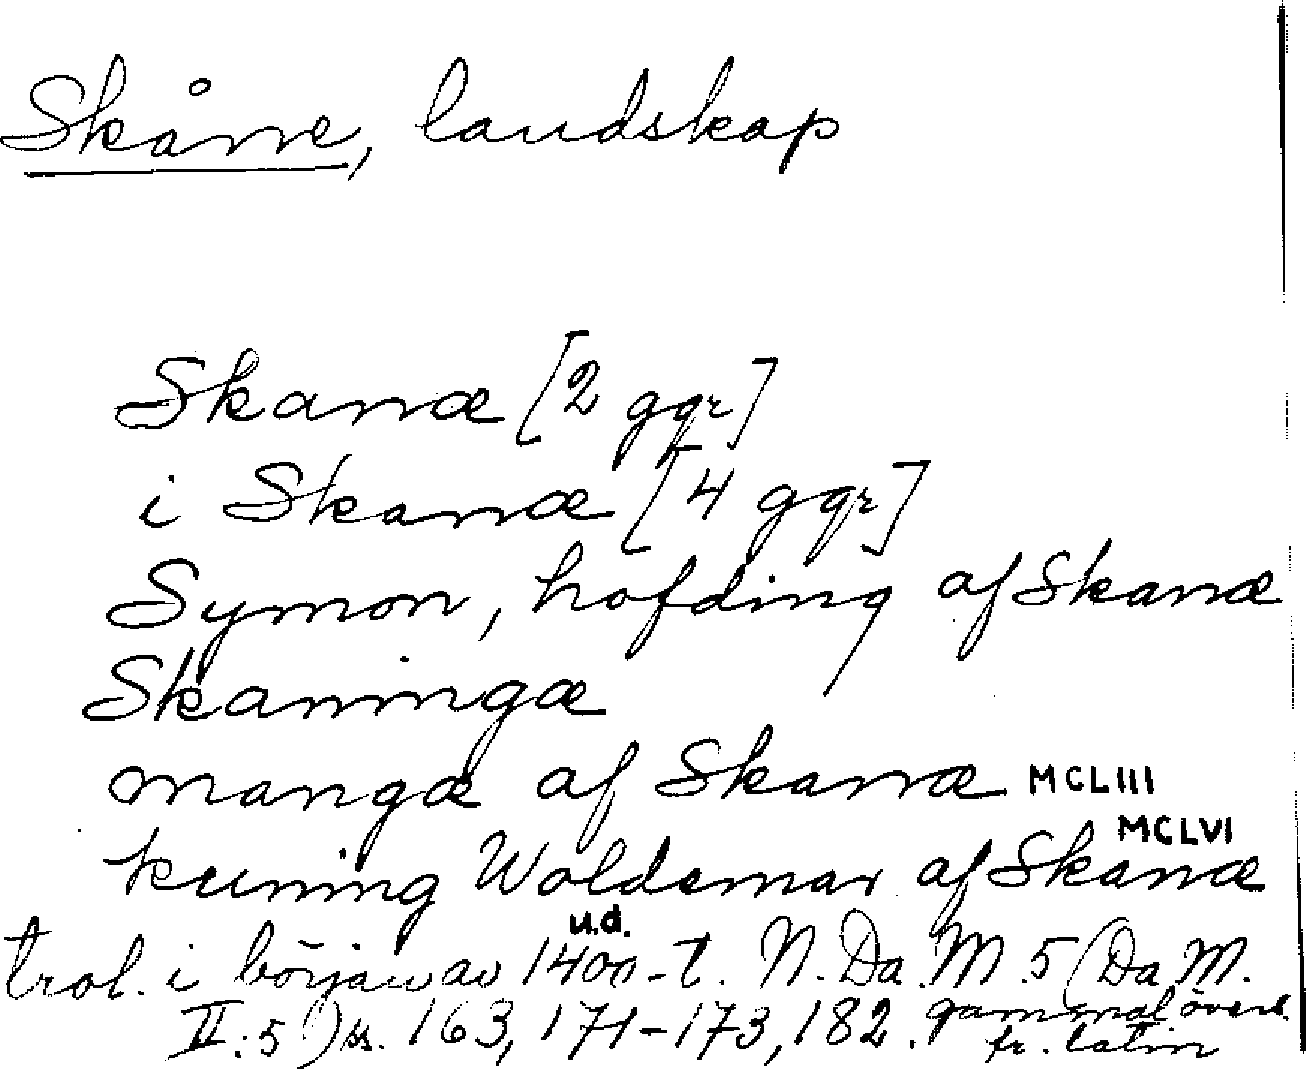 Skåne, landskap
Skanæ [2 ggr]
i Skanæ [4 ggr]
Symon, hofding af Skanæ
Skaningæ
mangæ af Skanæ MCLIII
MCLVI
kuning Woldemar af Skanæ
u.d.
trol. i början av 1400-t. N. Da. M. 5 (Da. M.
II:5) ss. 163, 171-173, 182. gammal övers.
fr. latin